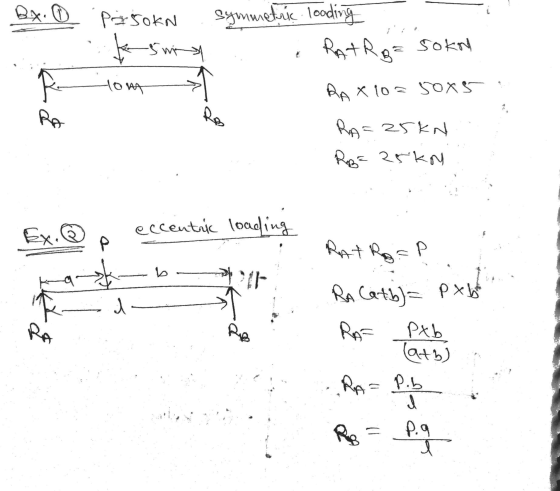 Ex. ① P=50KN symmetric loading
5m
10m
RA RB
RA+RB= 50KN
RA × 10 = 50×5
RA= 25KN
RB= 25KN
Ex. ② eccentric loading
P
a b
l
RA RB
RA+ RB= P
RA (a+b)= P×b
RA= P×b/(a+b)
RA = P.b/l
RB = P.a/l